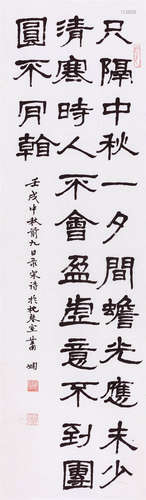 只隔中秋一夕間蟾光應未少
清寒時人不會盈虛意不到團
圓不肎看
壬戌中秋前九日录宋诗於枕琴室萧娴